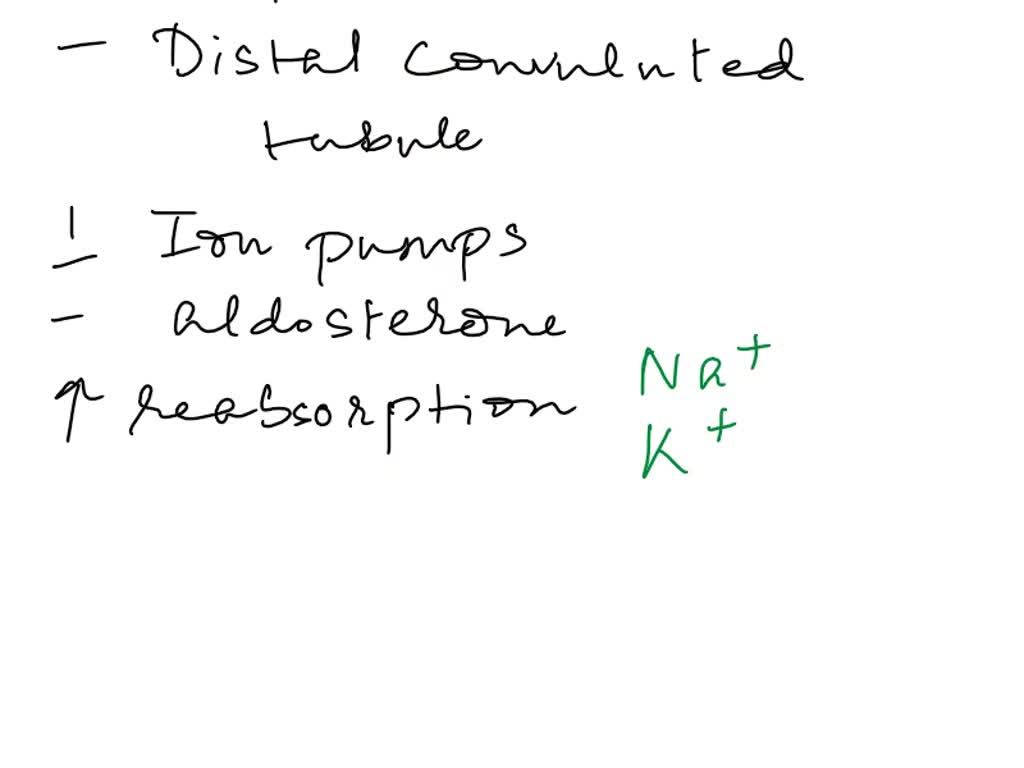 - Distal convulented
tubule
- Ion pumps
- aldosterone
↑ reabsorption Na+
K+